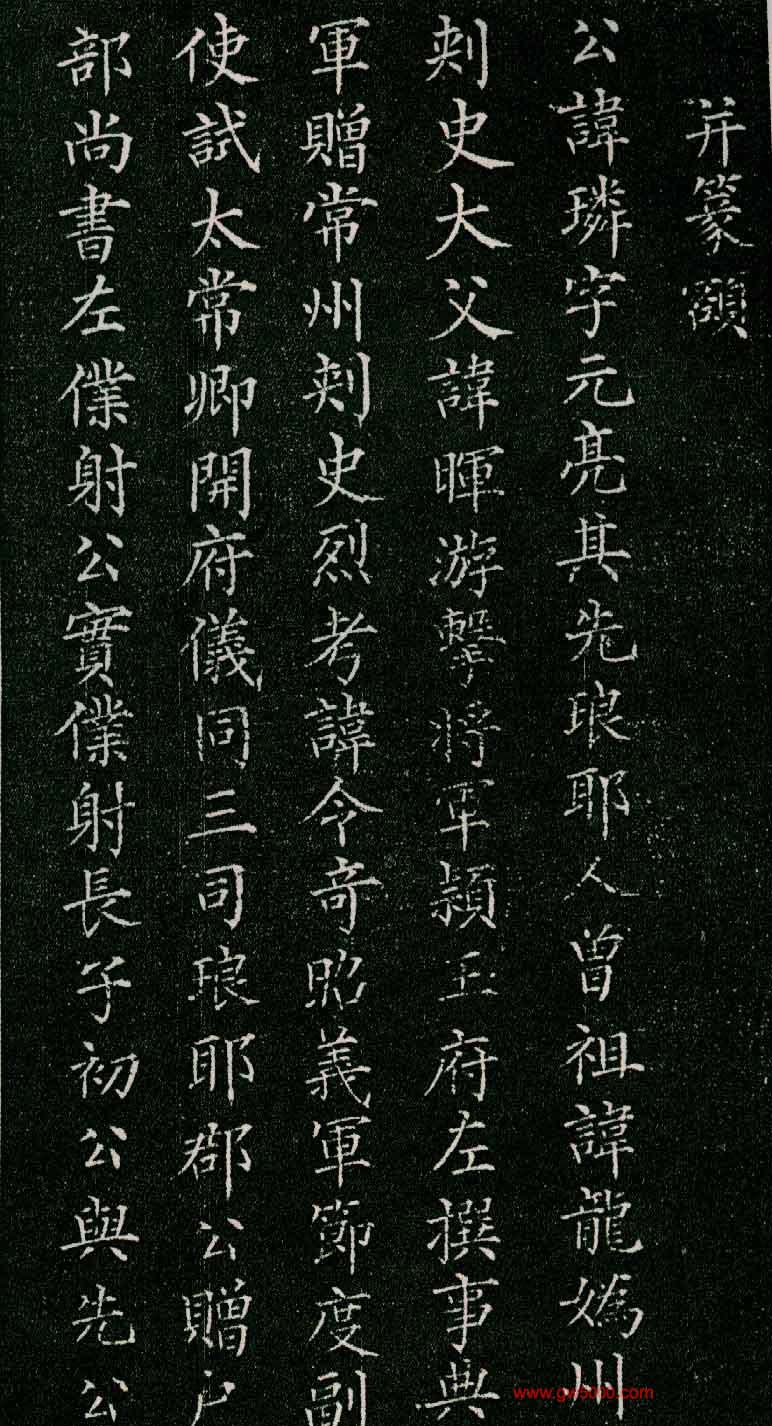 并篆額
公諱璘字元亮其先琅耶人曾祖諱龍媯州
刺史大父諱暉游擊將軍潁王府左撰事典
軍贈常州刺史烈考諱令奇昭義軍節度副
使試太常卿開府儀同三司琅耶郡公贈户
部尚書左僕射公實僕射長子初公與先公
www.gw5000.com